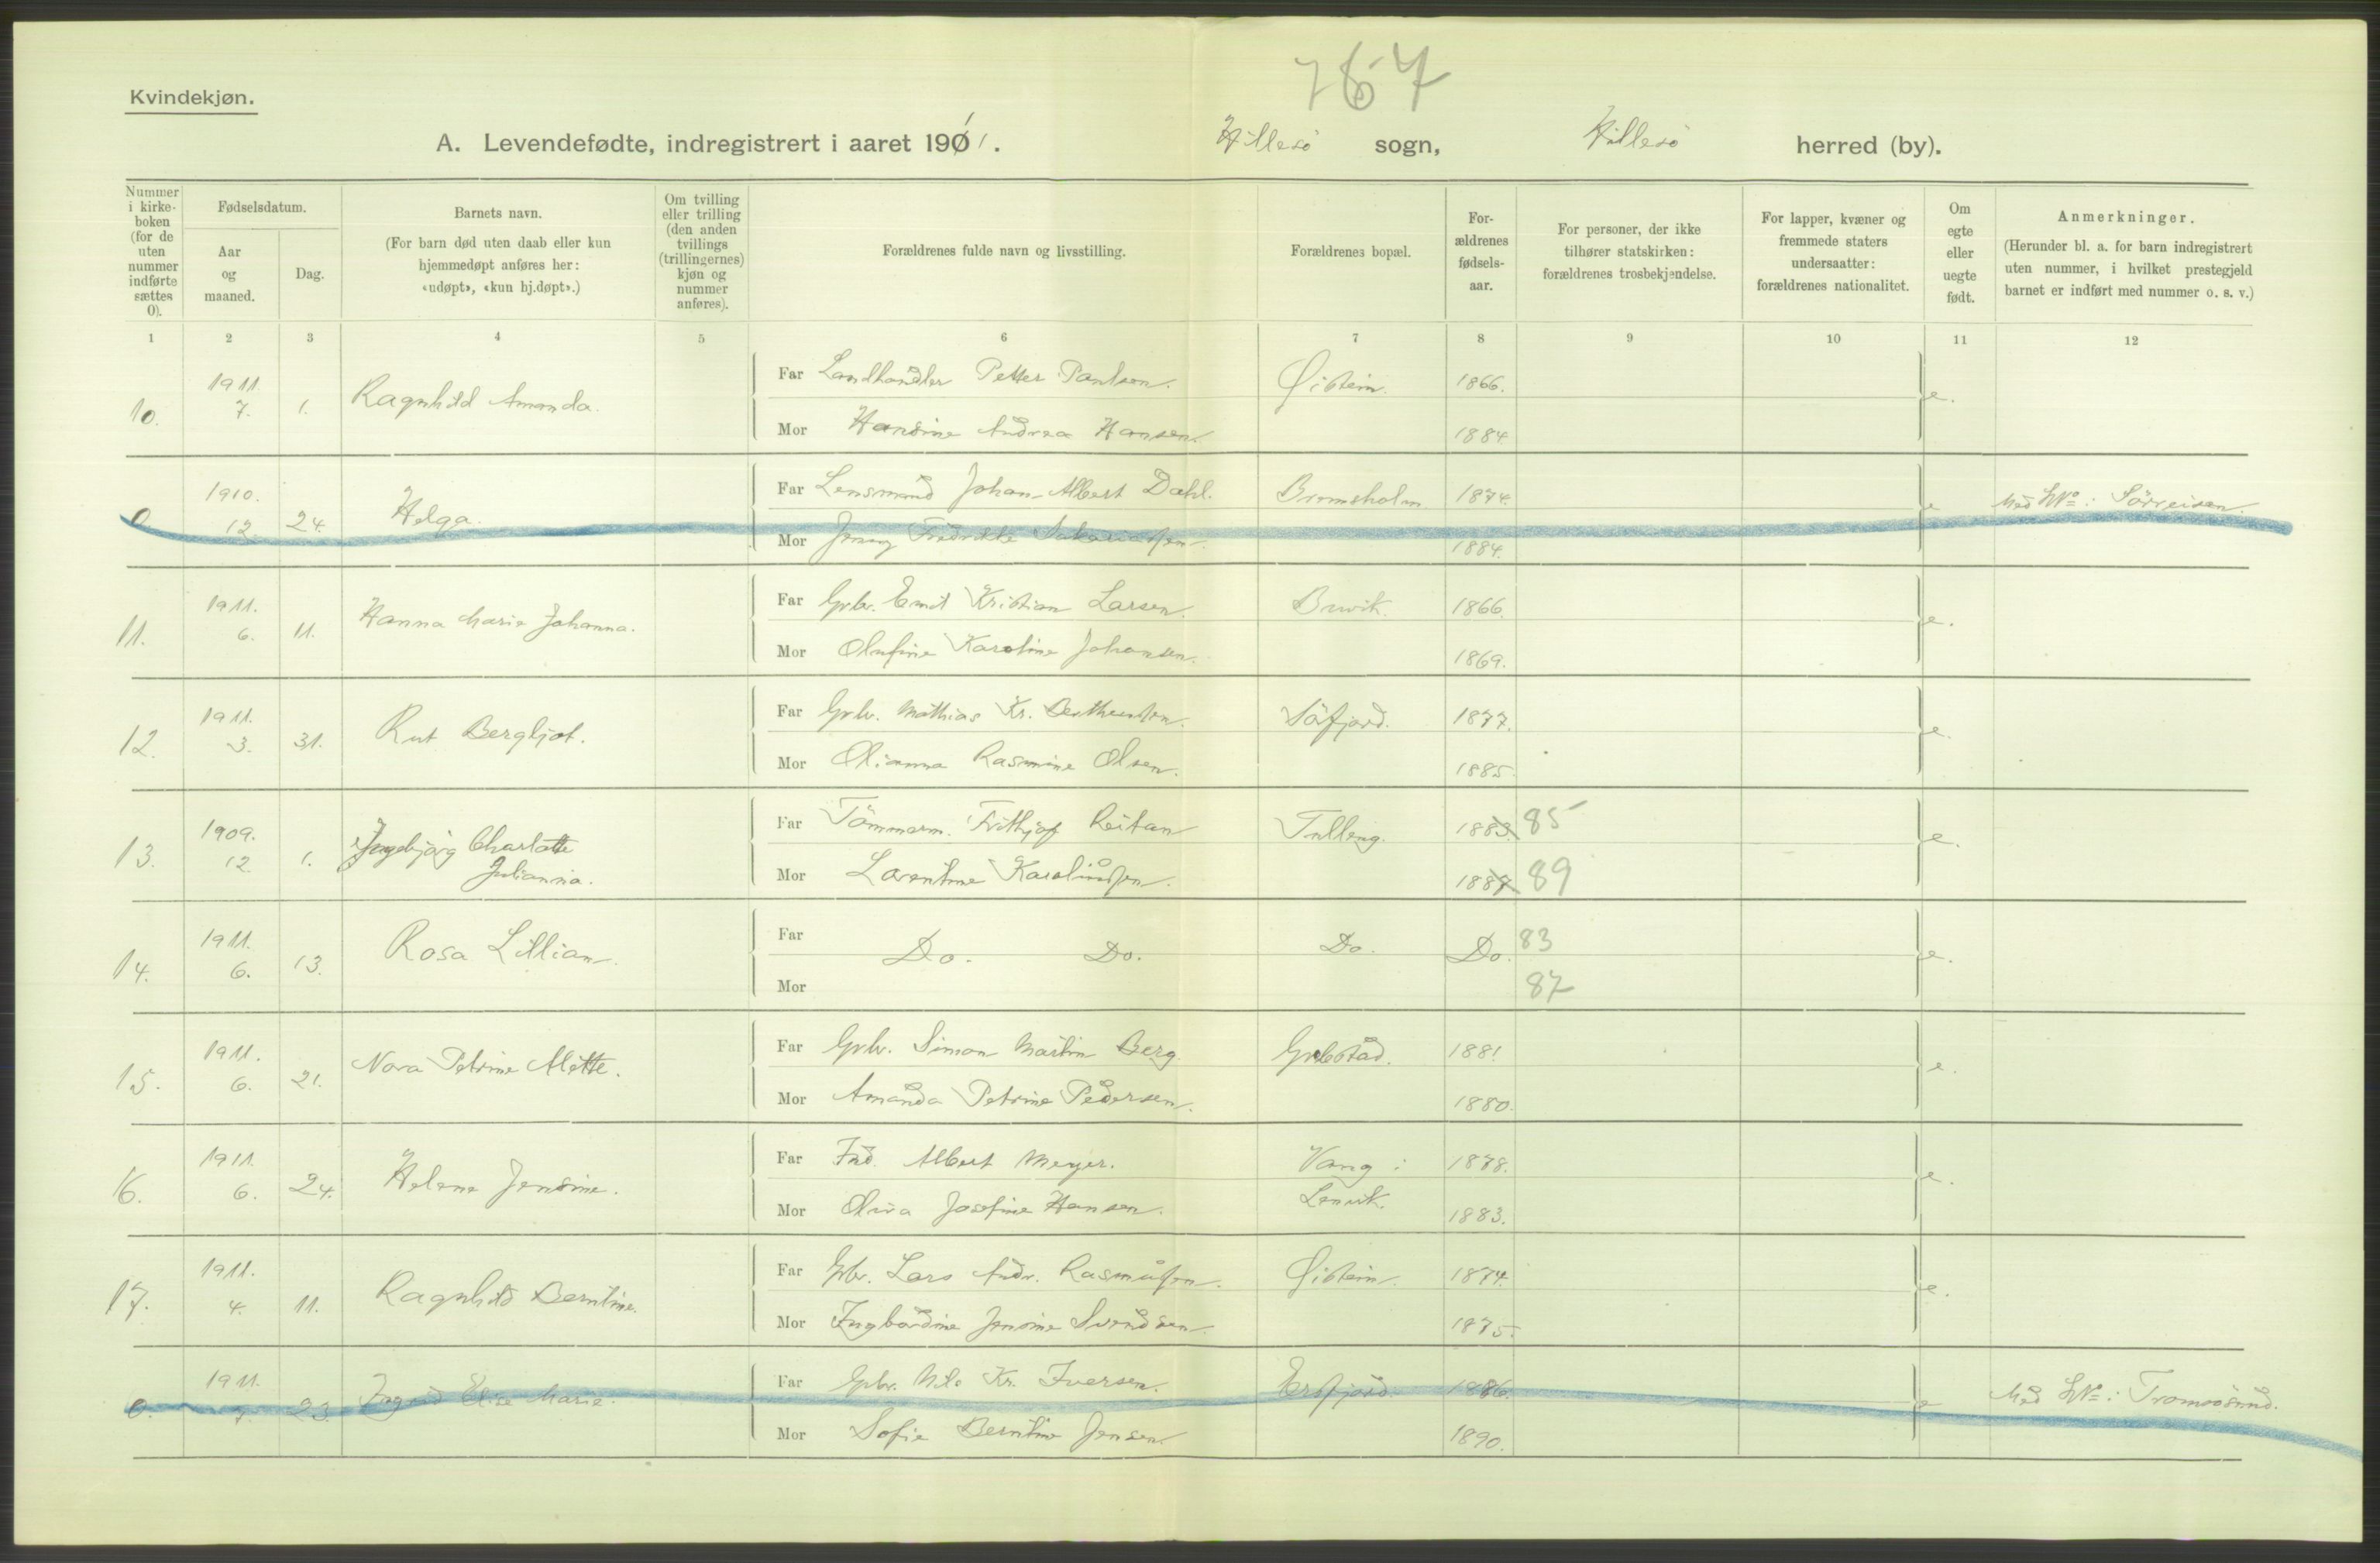 767
Kvindekjøn.
A. Levendefødte, indregistrert i aaret 1911. Hillesö sogn, Hillesö herred (by).
Nummer i kirke-boken (for de uten nummer indførte sættes 0).
Fødselsdatum.
Aar og maaned.
Dag.
Barnets navn.
(For barn død uten daab eller kun hjemmedøpt anføres her: «udøpt», «kun hj.døpt».)
Om tvilling eller trilling (den anden tvillings (trillingernes) kjøn og nummer anføres).
Forældrenes fulde navn og livsstilling.
Forældrenes bopæl.
For-ældrenes fødsels-aar.
For personer, der ikke tilhører statskirken: forældrenes trosbekjendelse.
For lapper, kvæner og fremmede staters undersaatter: forældrenes nationalitet.
Om egte eller uegte født.
Anmerkninger.
(Herunder bl. a. for barn indregistrert uten nummer, i hvilket prestegjeld barnet er indført med nummer o. s. v.)
1 2 3 4 5 6 7 8 9 10 11 12
10. 1911. 7. 1. Ragnhild Amanda. Far Landhandler Petter Paulsen. Öistein. 1866. e.
Mor Hansine Andrea Hansen. 1884
0 1910. 12. 24. Helga. Far Lensmand Johan Albert Dahl. Bromsholm 1874. e Med No i Sörreisen.
Mor Jenny Fredrikke 1884.
11. 1911. 6. 11. Hanna Marie Johanna. Far Grbr. Emil Kristian Larsen. Buvik. 1866. e.
Mor Olufine Karoline Johansen. 1869.
12. 1911. 3. 31. Rut Bergljot. Far Grbr. Mathias Kr. Bertheussen. Söfjord. 1877. e.
Mor Olianna Rasmine Olsen. 1885.
13. 1909. 12. 1. Ingebjörg Charlotte Julianna. Far Tömmerm. Frithjof Reitan Tulleng. 1883. 85 e.
Mor Lorentine Karolinussen. 1887 89
14. 1911. 6. 13. Rosa Lillian. Far Do. Do. Do. Do. 83 e.
Mor 87
15. 1911. 6. 21. Nora Petrine Alette. Far Grbr. Simon Martin Berg. Grebstad. 1881 e.
Mor Amanda Petrine Pedersen. 1880.
16. 1911. 6. 24. Helene Jensine. Far Ind. Albert Meyer. Vang i 1878. e.
Mor Oliva Josefine Hansen. Lenvik. 1883.
17. 1911. 4. 11. Ragnhild Berntine. Far Grbr. Lars Andr. Rasmussen. Öistein. 1874. e.
Mor Ingbordine Jensine Svendsen. 1875.
0. 1911. 7 23. Ingrid Elise Marie. Far Grbr. Nils Kr. Iversen. Ersfjord. 1886. e Med No i Tromsösund.
Mor Sofie Berntine Jensen. 1890.